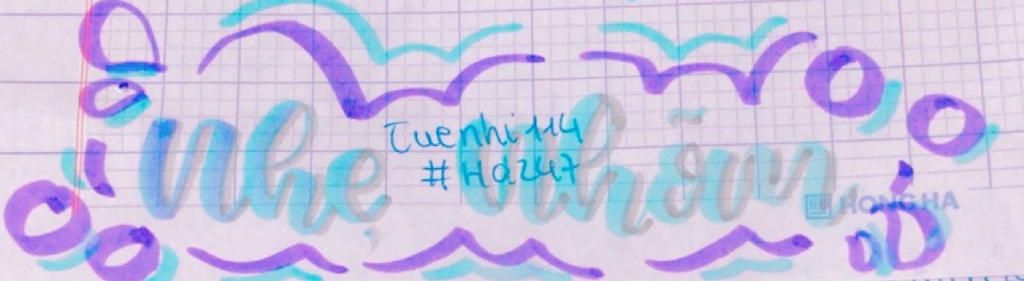 Tuenhi114
#Hd247
Nhẹ Nhõm
HONG HA